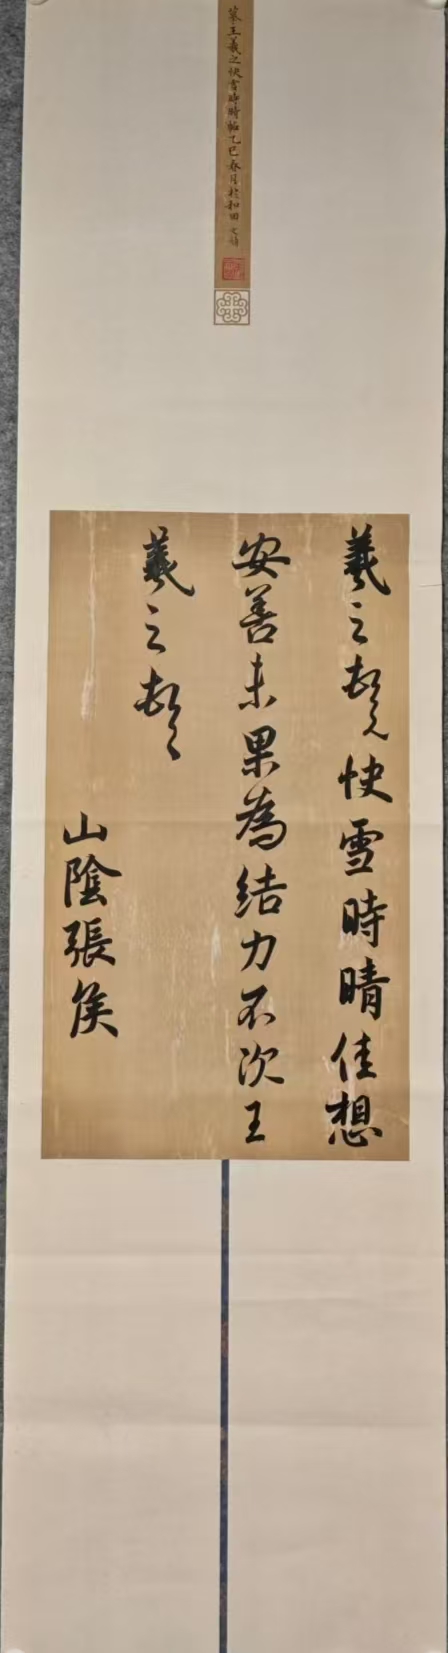 摹王羲之快雪時晴帖乙巳春月於和田
羲之頓首快雪時晴佳想
安善未果為結力不次王
羲之頓首
山陰張侯